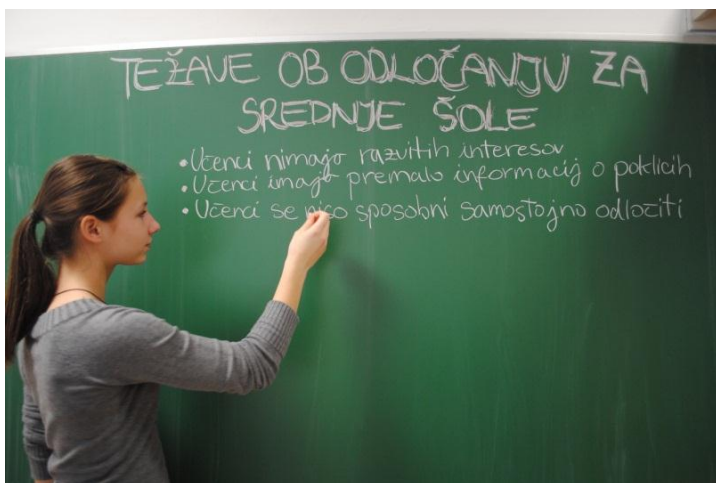 TEŽAVE OB ODLOČANJU ZA
SREDNJE ŠOLE
• Učenci nimajo razvitih interesov
• Učenci imajo premalo informacij o poklicih
• Učenci se niso sposobni samostojno odločiti